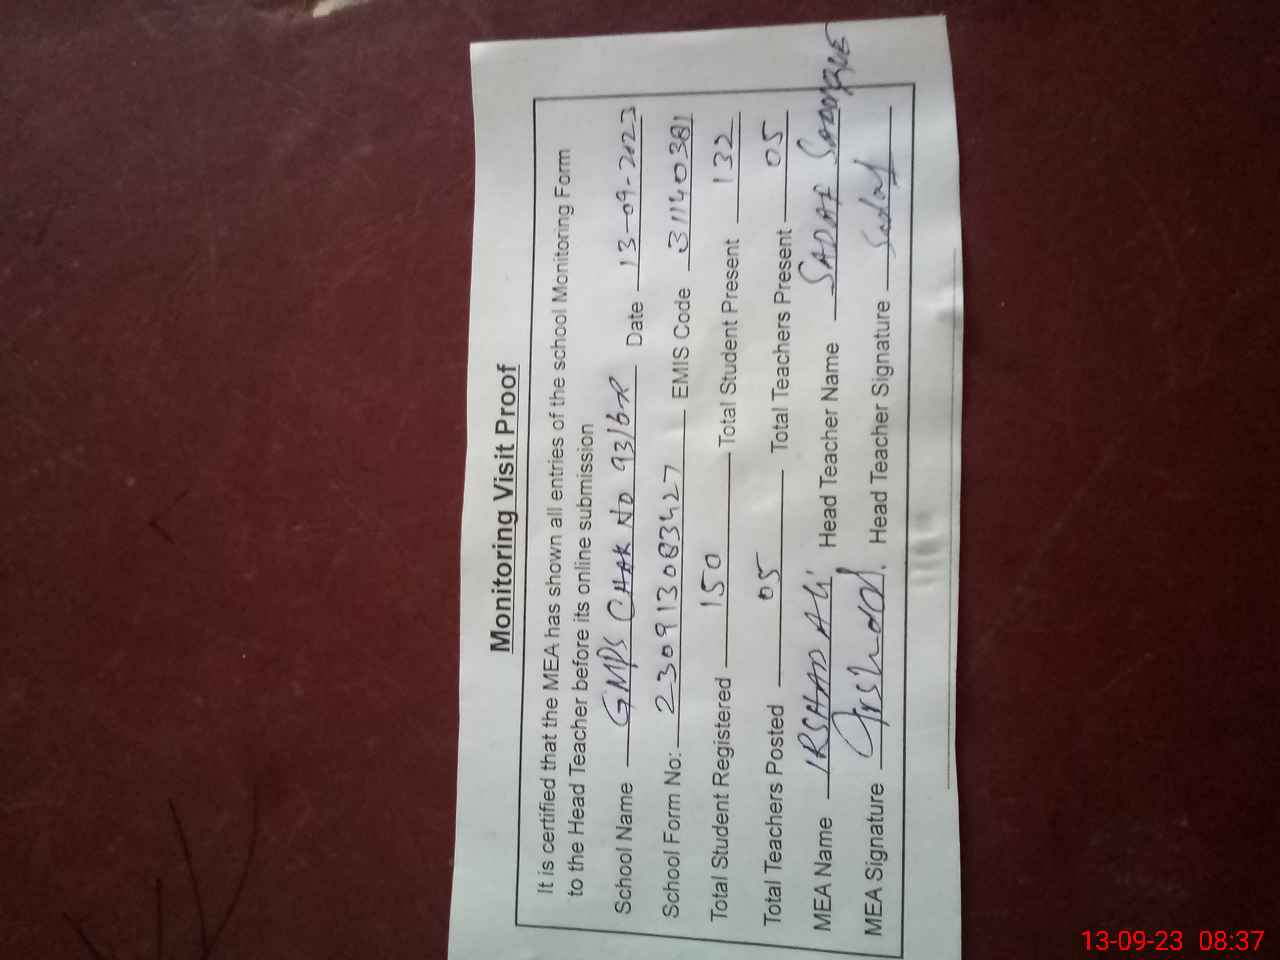 Monitoring Visit Proof
It is certified that the MEA has shown all entries of the school Monitoring Form
to the Head Teacher before its online submission
School Name GMPS CHAK NO 93/6-R Date 13-09-2023
School Form No: 230913083427 EMIS Code 31140381
Total Student Registered 150 Total Student Present 132
Total Teachers Posted 05 Total Teachers Present 05
MEA Name IRSHAD Ali Head Teacher Name SADAF
MEA Signature Irshad Head Teacher Signature Sadaf
13-09-23 08:37